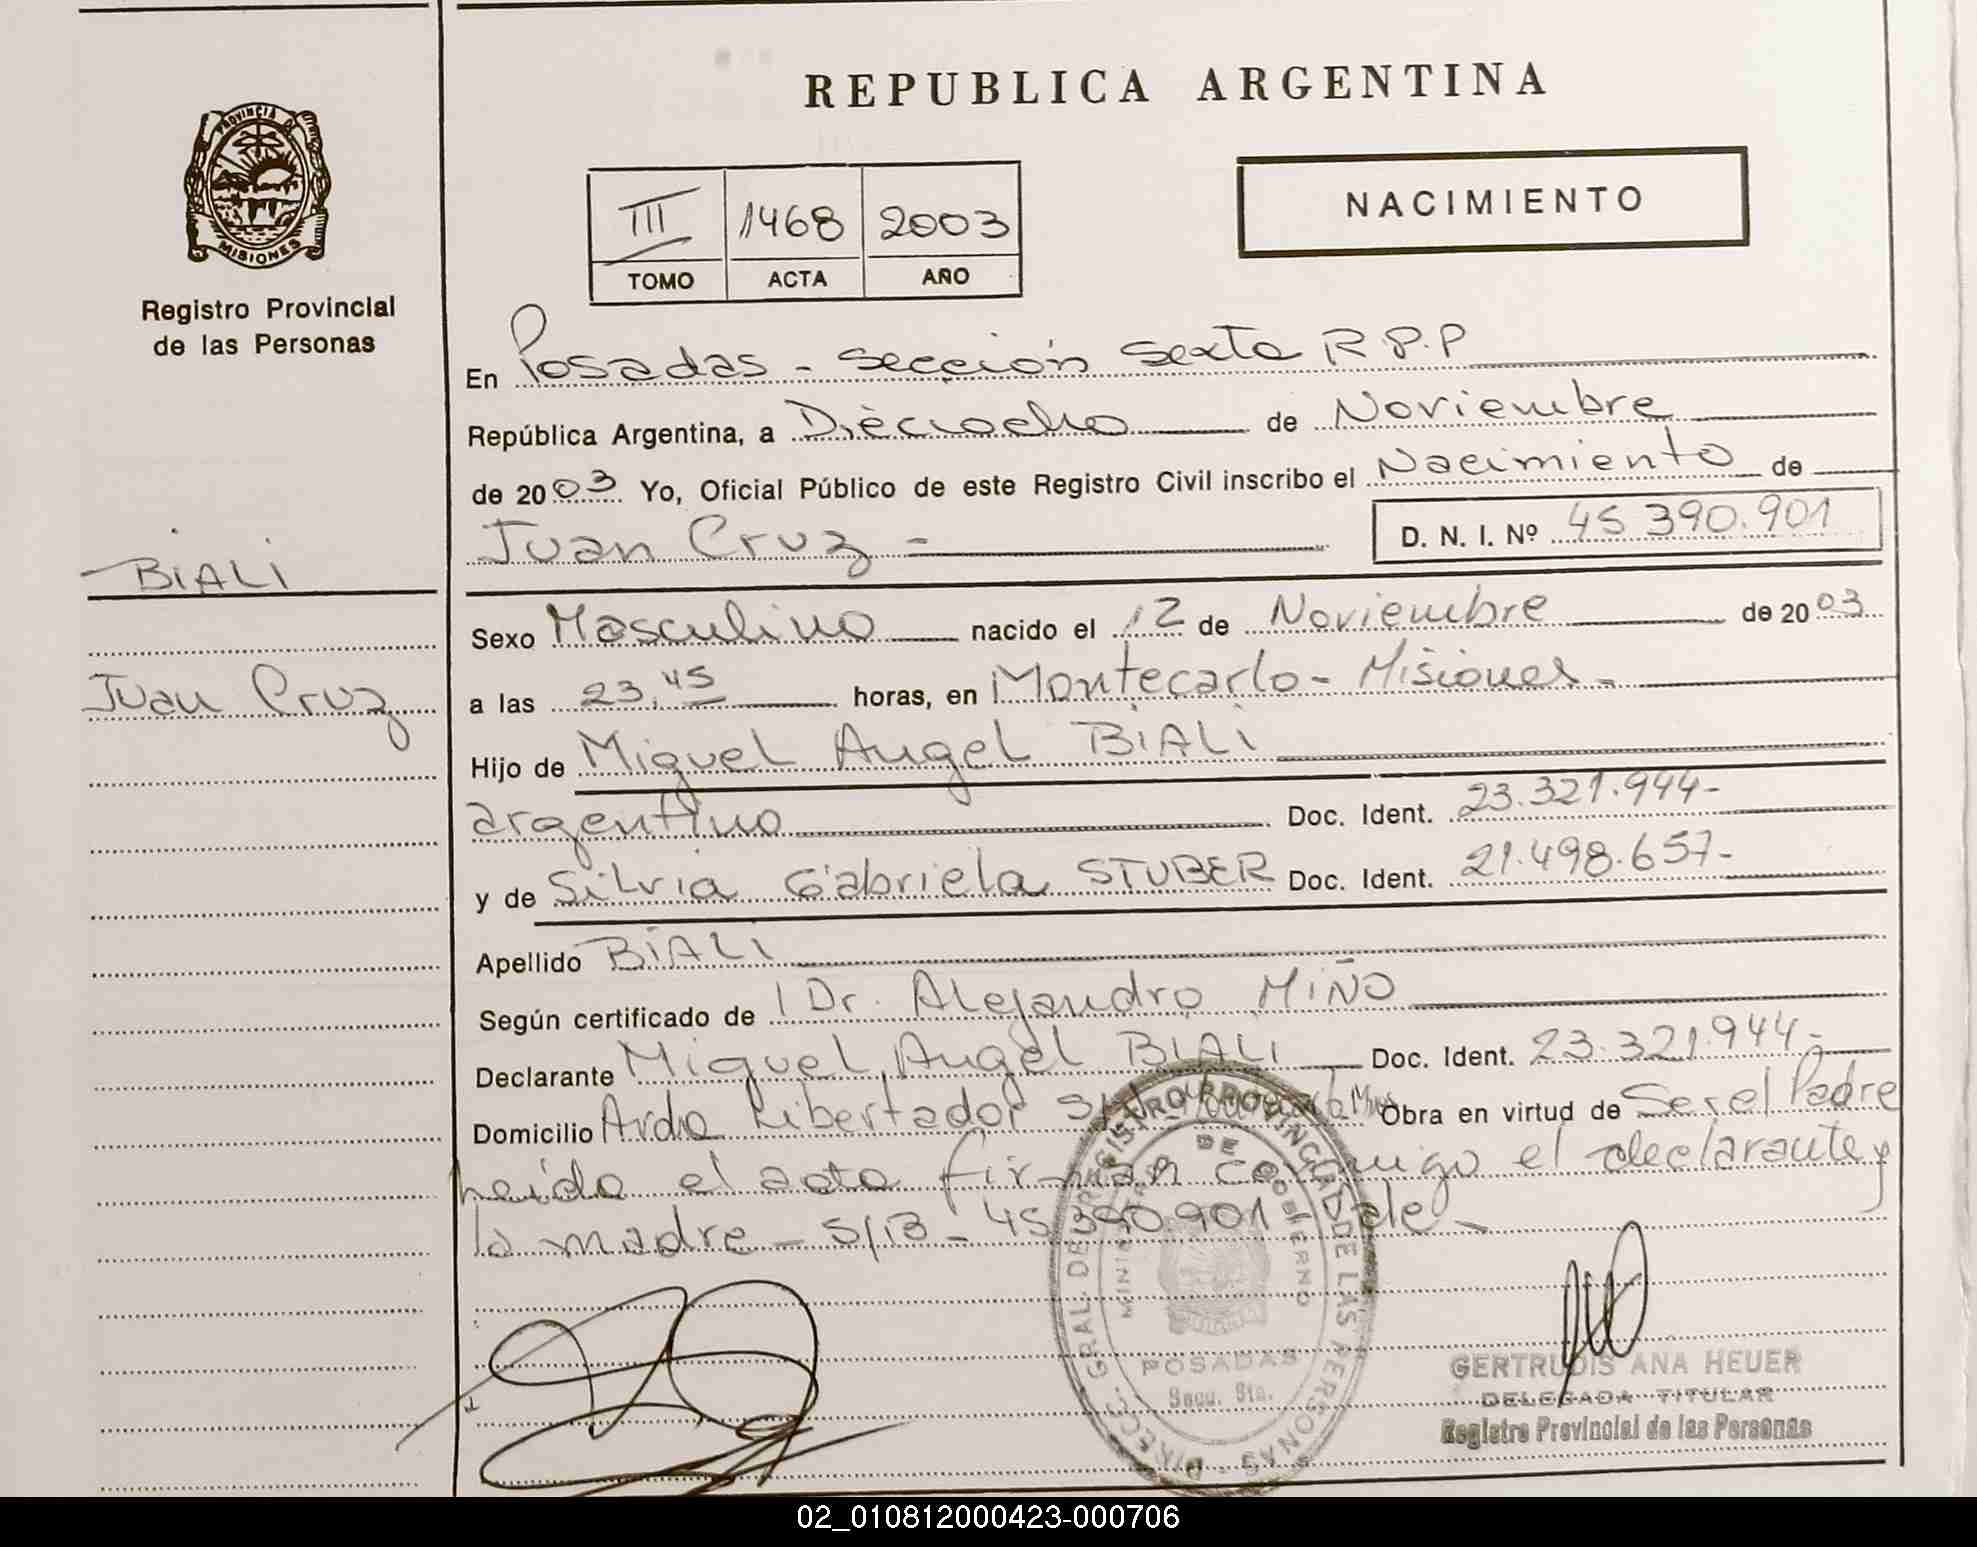 REPUBLICA ARGENTINA
PROVINCIA DE
MISIONES
Registro Provincial
de las Personas
III 1468 2003
TOMO ACTA AÑO
NACIMIENTO
En Posadas - sección sexta R.P.P
República Argentina, a Dieciocho de Noviembre
de 2003 Yo, Oficial Público de este Registro Civil inscribo el Nacimiento de
Juan Cruz - D. N. I. Nº 45.390.901
BIALI
Juan Cruz
Sexo Masculino nacido el 12 de Noviembre de 2003
a las 23,45 horas, en Montecarlo - Misiones -
Hijo de Miguel Angel BIALI
argentino Doc. Ident. 23.321.944-
y de Silvia Gabriela STUBER Doc. Ident. 21.498.657-
Apellido BIALI
Según certificado de Dr. Alejandro MIÑO
Declarante Miguel Angel BIALI Doc. Ident. 23.321.944-
Domicilio Avda Libertador S/N Obra en virtud de Ser el Padre
Leída el acta firman conmigo el declarante y
la madre - S/B - 45.390.901 Vale -
DIRECC. GRAL. DE REGISTRO PROVINCIAL DE LAS PERSONAS
MINISTERIO DE GOBIERNO
POSADAS
Secc. 6ta.
GERTRUDIS ANA HEUER
DELEGADA TITULAR
Registro Provincial de las Personas
02_010812000423-000706